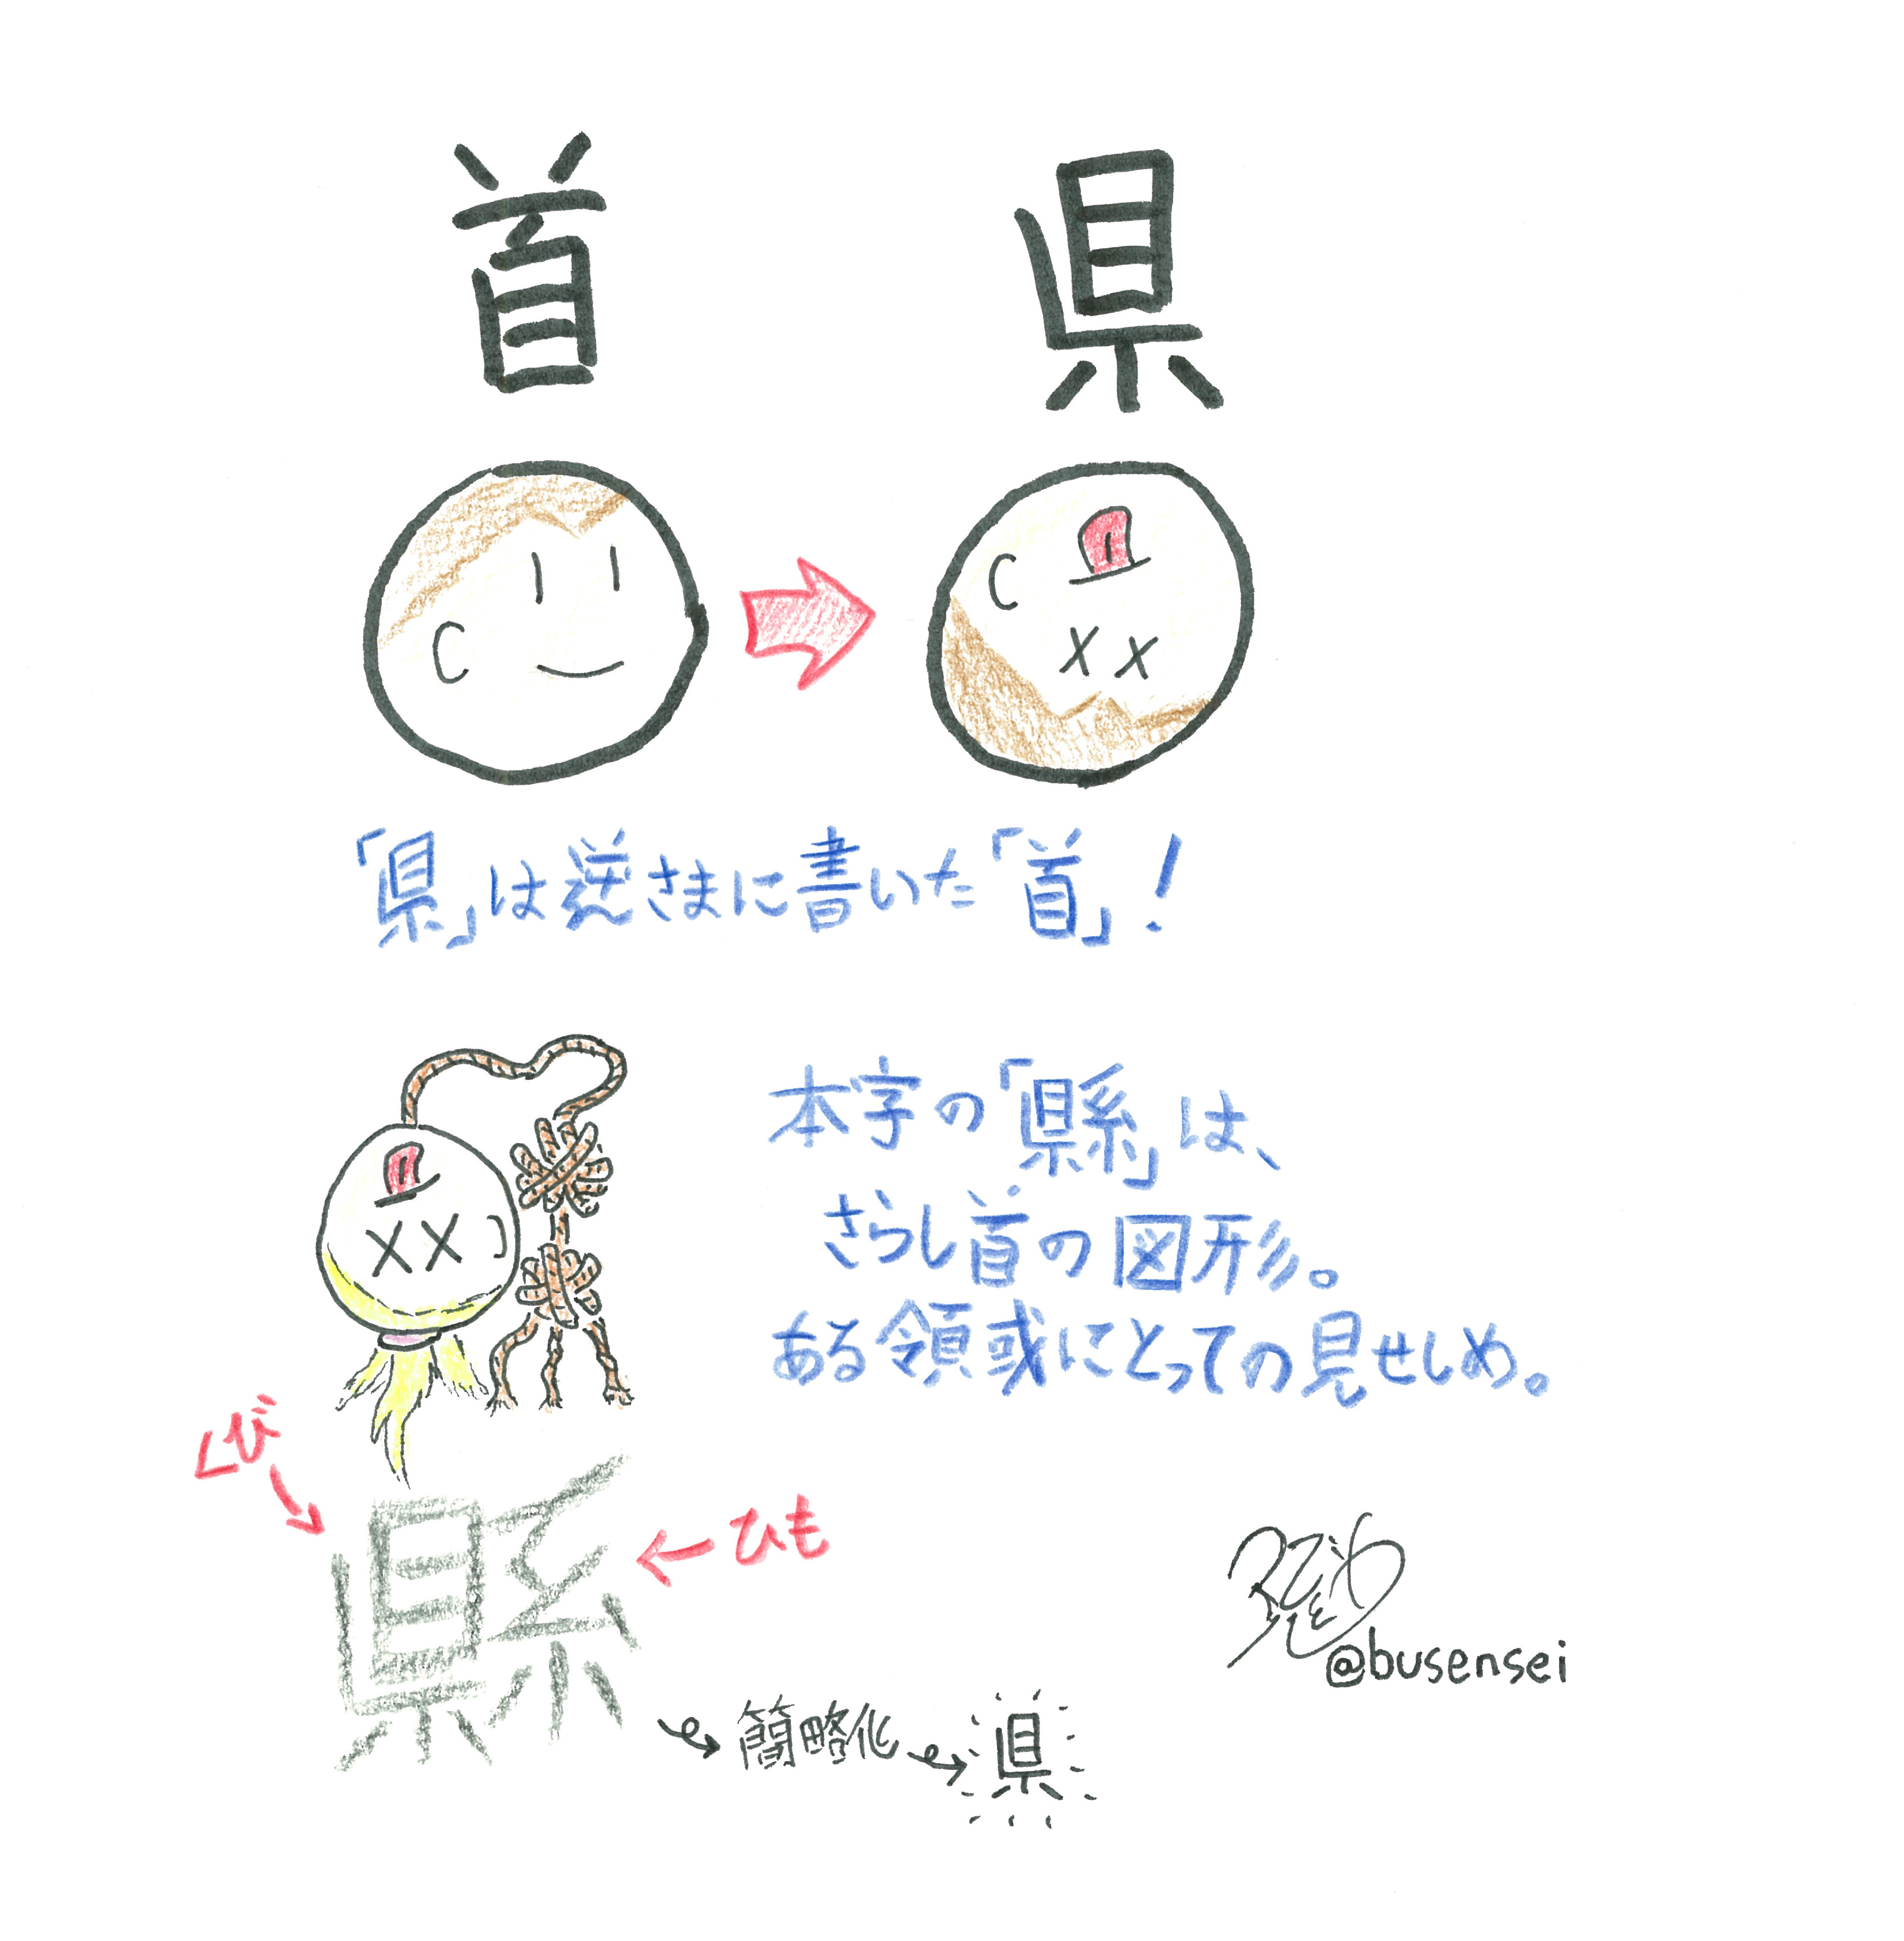 首 県
「県」は逆さまに書いた「首」!
本字の「縣」は、
さらし首の図形。
ある領或にとっての見せしめ。
くび
ひも
縣
簡略化
県
@busensei